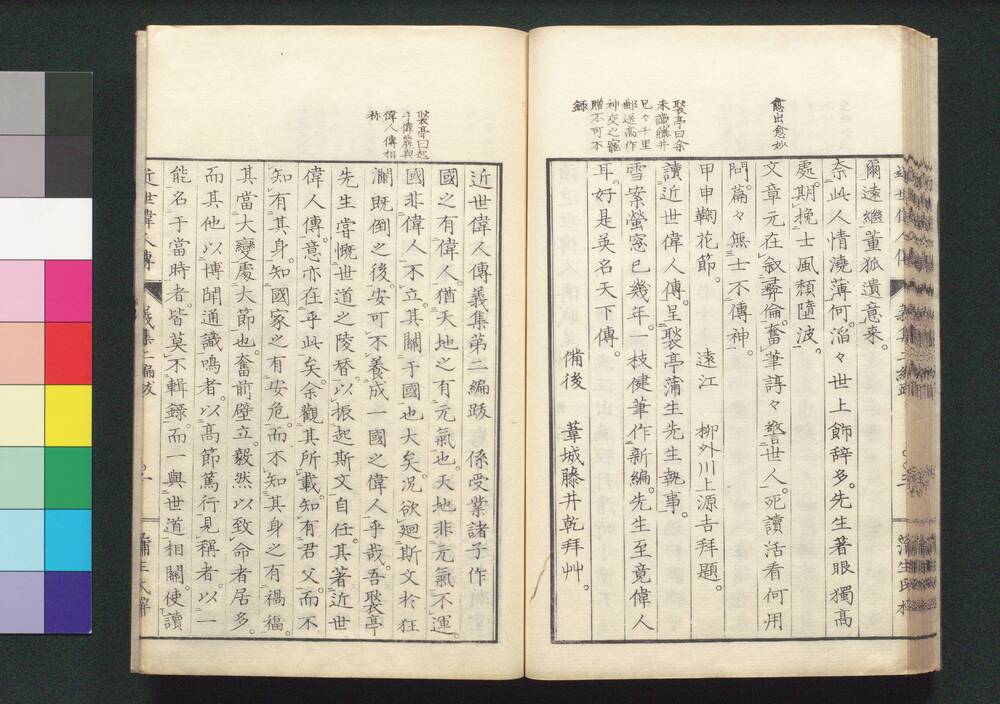 愈出愈妙
褧亭曰余
未識藤井
兄々千里
郵送高作
神交之寵
贈不可不
錄
爾遠繼董狐遺意來。
奈此人情澆薄何滔々世上飾辞多。先生著眼獨高
處。期挽士風頽隨波。
文章元在叙彝倫。奮筆諄々警世人。死讀活看何用
問。篇々無士不傳神。
甲申鞠花節。 遠江 柳外川上源吉拜題。
讀近世偉人傳。呈褧亭蒲生先生執事。
雪案螢窓已幾年。一枝健筆作新編。先生至竟偉人
耳。好是英名天下傳。
備後 葦城藤井乾拜艸。
褧亭曰起
手偉麗與
偉人傳相
称
近世偉人傳義集第二編跋 係受業諸子作
國之有偉人。猶天地之有元氣也。天地非元氣不運。
國非偉人不立。其關于國也大矣。况欲廻斯文於狂
瀾既倒之後。安可不養成一國之偉人乎哉。吾褧亭
先生嘗慨世道之陵替。以振起斯文自任。其著近世
偉人傳。意亦在乎此矣。余觀其所載。知有君父。而不
知有其身。知國家之有安危。而不知其身之有禍福。
其當大變處大節也。奮前壁立。毅然以致命者居多。
而其他以博聞通識鳴者。以高節篤行見稱者。以一
能名于當時者。皆莫不輯錄。而一與世道相關。使讀
近世偉人傳 義集二編跋 蒲生氏梓